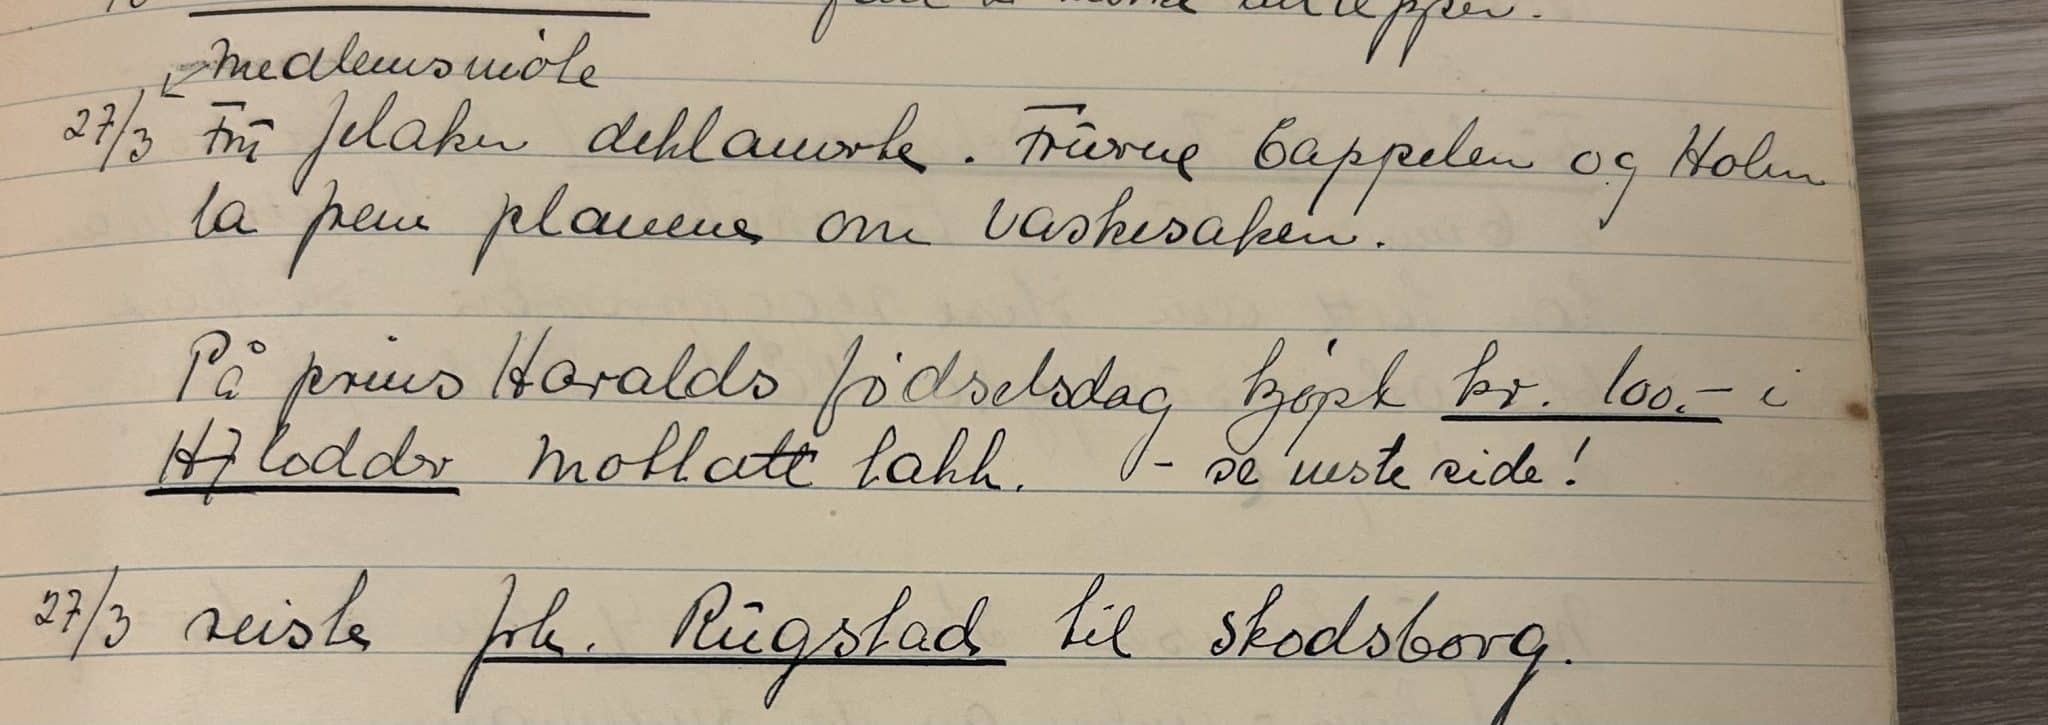 medlemsmöte
27/3 Frū Jelaker deklamerte. Frūene Cappelen og Holm
la frem planene om vaskesaken.
På prins Haralds fødselsdag kjøpt kr. 100.- i
H7 lodder mottatt takk. - se neste side!
27/3 reiste frk. Rūgstad til Skodsborg.